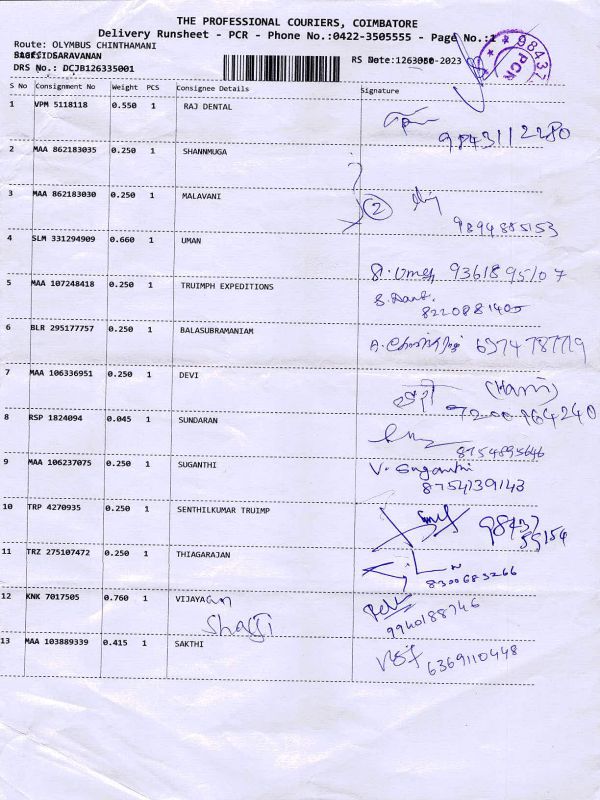 THE PROFESSIONAL COURIERS, COIMBATORE
Delivery Runsheet - PCR - Phone No.:0422-3505555 - Page No.:1
Route: OLYMBUS CHINTHAMANI
DRS No.: DCJB126335001
98437
PCR
S No Consignment No Weight PCS Consignee Details Signature
1 VPM 5118118 0.550 1 RAJ DENTAL
9843112280
2 MAA 862183035 0.250 1 SHANNMUGA
3 MAA 862183030 0.250 1 MALAVANI
2
9894885153
4 SLM 331294909 0.660 1 UMAN
9361895107
5 MAA 107248418 0.250 1 TRUIMPH EXPEDITIONS
8220881405
6 BLR 295177757 0.250 1 BALASUBRAMANIAM
7 MAA 106336951 0.250 1 DEVI
8 RSP 1824094 0.045 1 SUNDARAN
8754895646
9 MAA 106237075 0.250 1 SUGANTHI
V. Suganthi
8754139143
10 TRP 4270935 0.250 1 SENTHILKUMAR TRUIMP
11 TRZ 275107472 0.250 1 THIAGARAJAN
8300683266
12 KNK 7017505 0.760 1 VIJAYAan
Shaji
9940188746
13 MAA 103889339 0.415 1 SAKTHI
6369110448